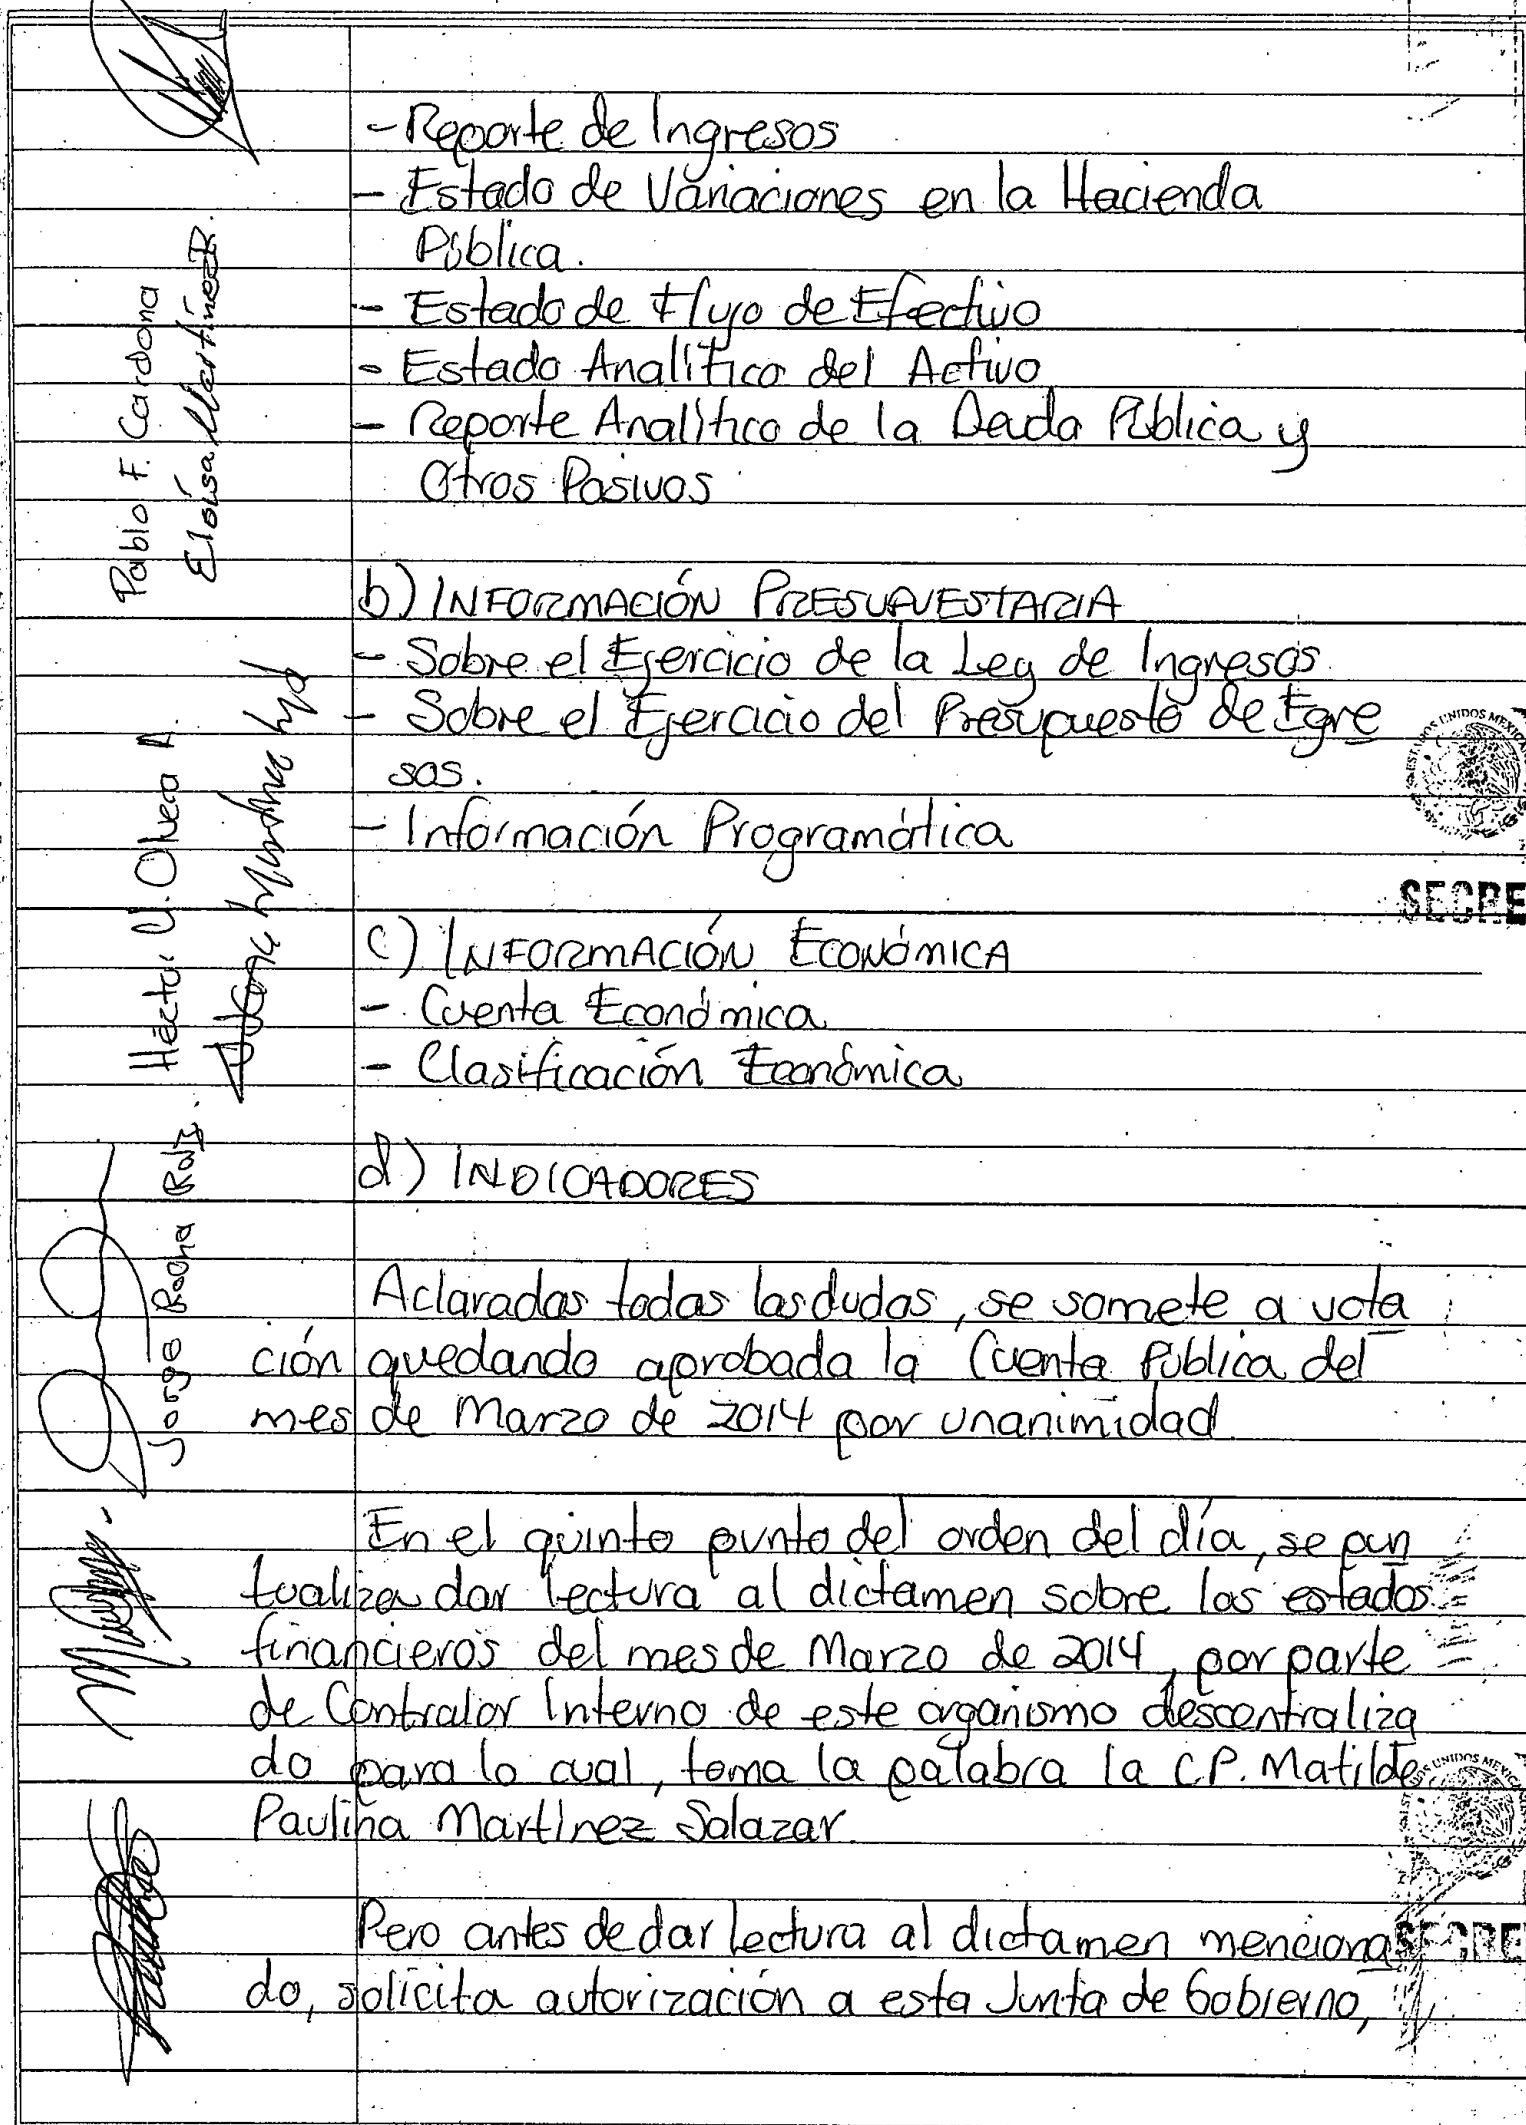 - Reporte de Ingresos
- Estado de Variaciones en la Hacienda
Pública.
- Estado de Flujo de Efectivo
- Estado Analítico del Activo
- Reporte Analítico de la Deuda Pública y
Otros Pasivos
b) INFORMACIÓN PRESUPUESTARIA
- Sobre el Ejercicio de la Ley de Ingresos
- Sobre el Ejercicio del Presupuesto de Egre
sos.
- Información Programática
c) INFORMACIÓN ECONÓMICA
- Cuenta Económica
- Clasificación Económica
d) INDICADORES
Aclaradas todas las dudas, se somete a vota
ción quedando aprobada la Cuenta Pública del
mes de Marzo de 2014 por unanimidad
En el quinto punto del orden del día, se pun
tualiza dar lectura al dictamen sobre los estados
financieros del mes de Marzo de 2014, por parte
de Contralor Interno de este organismo descentraliza
do para lo cual, toma la palabra la C.P. Matilde
Paulina Martínez Salazar.
Pero antes de dar lectura al dictamen menciona
do, solicita autorización a esta Junta de Gobierno,
Pablo F. Cardona
Eloísa Martínez P.
Héctor U. Olvera A.
Jorge Rocha
UNIDOS MEXICA
SECRE
UNIDOS MEXIC
SECRE